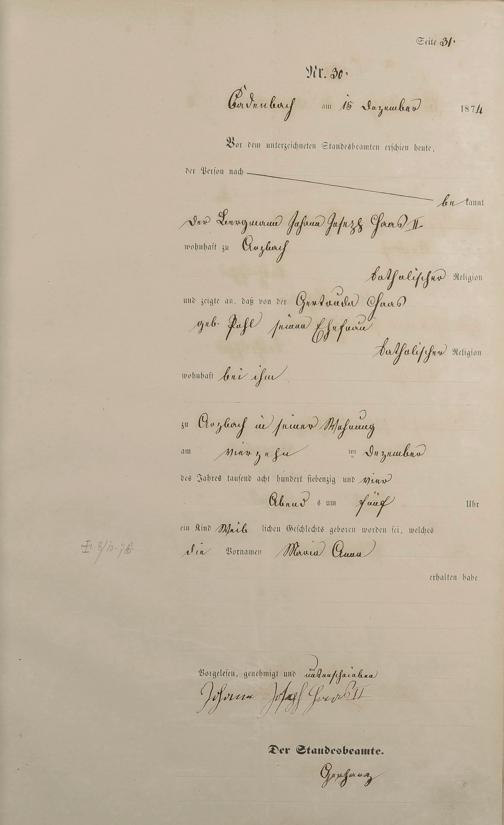 Seite 31.
Nr. 30.
Cadenbach am 15 Dezember 1874
Vor dem unterzeichneten Standesbeamten erschien heute,
der Person nach
bekannt
der Bergmann Johann Joseph Haas II.
wohnhaft zu Arzbach
katholischer Religion
und zeigte an, daß von der Gertruda Haas
geb. Pohl seiner Ehefrau
katholischer Religion
wohnhaft bei ihm
zu Arzbach in seiner Wohnung
am vierzehn ten Dezember
des Jahres tausend acht hundert siebenzig und vier
Abend s um fünf Uhr
ein Kind Weib lichen Geschlechts geboren worden sei, welches
die Vornamen Maria Anna
erhalten habe
Vorgelesen, genehmigt und unterschrieben
Johann Joseph Haas II
Der Standesbeamte.